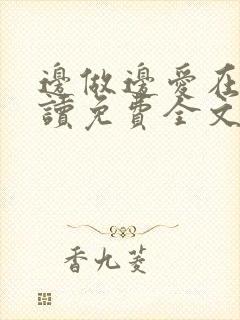 邊做邊愛在
讀免費全文
香九菱